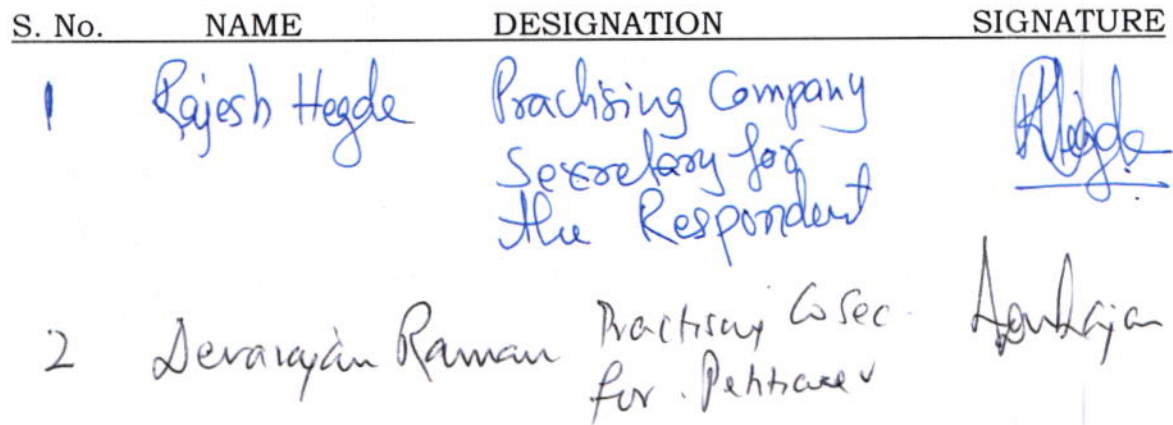 S. No. NAME DESIGNATION SIGNATURE
1 Rajesh Hegde Practising Company RHegde
Secretary for
the Respondent
2 Devarajan Raman Practising Co Sec.
for Petitioner